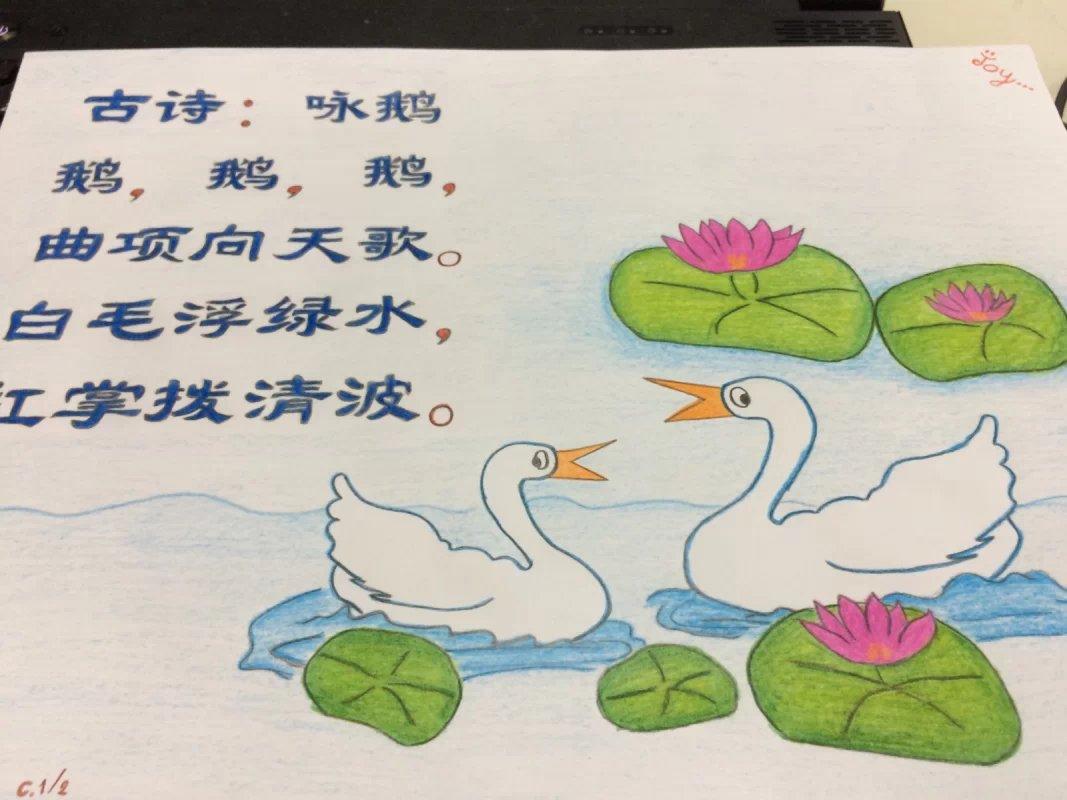 Joy...
古诗：咏鹅
鹅，鹅，鹅，
曲项向天歌。
白毛浮绿水，
红掌拨清波。
C.1/2